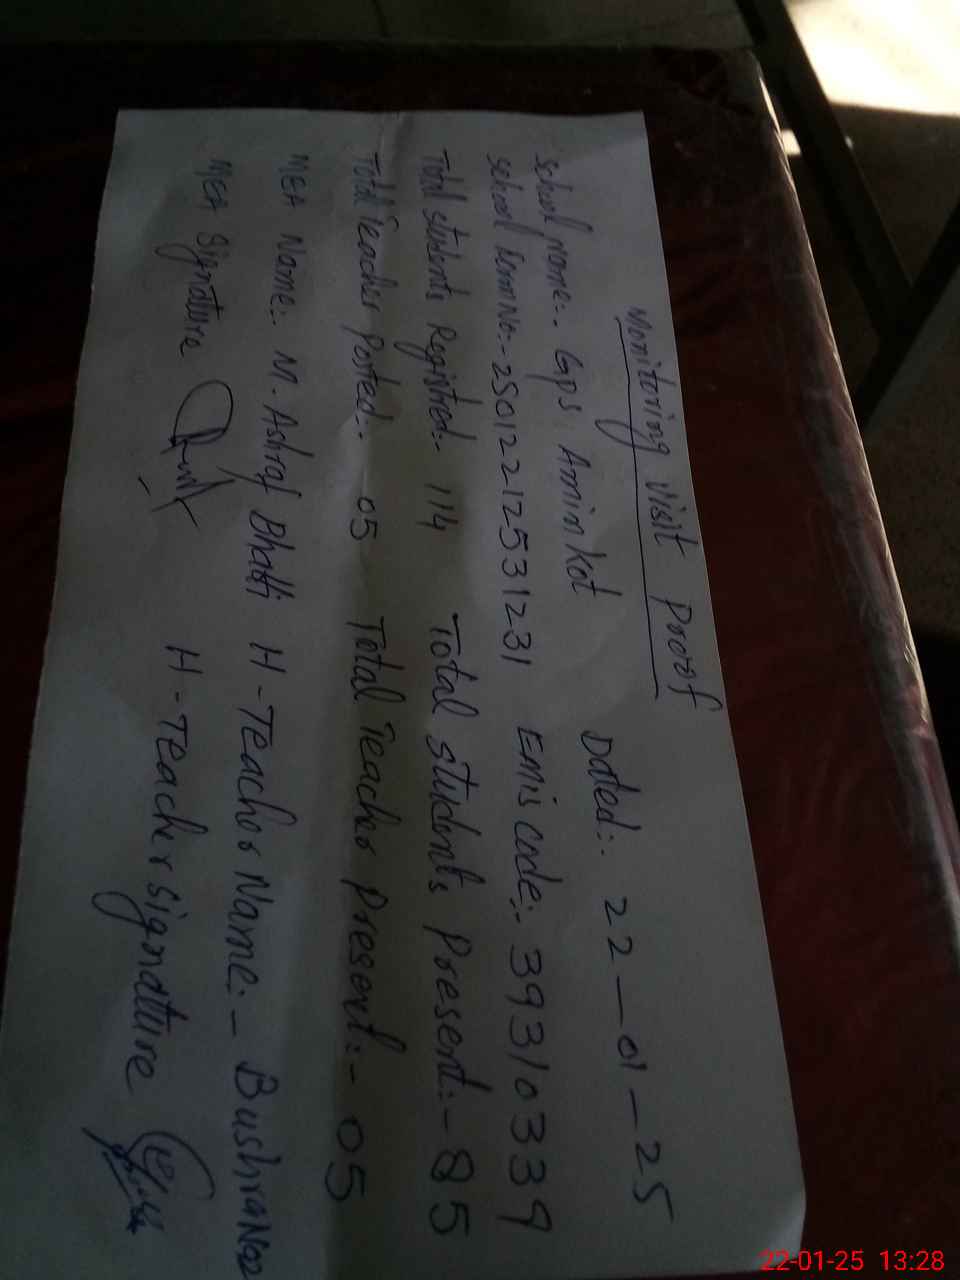 Monitoring visit proof
Dated:- 22-01-25
School name:- Gps Amin kot
School semm No:- 25012212531231 Emis code:- 39310339
Total students Registred:- 114 Total students Present:- 85
Total Teacher Posted:- 05 Total Teacher Present:- 05
MEA Name:- M. Ashraf Bhatti H-Teacher Name:- Bushra Naz
MEA Signature H-Teacher signature
22-01-25 13:28